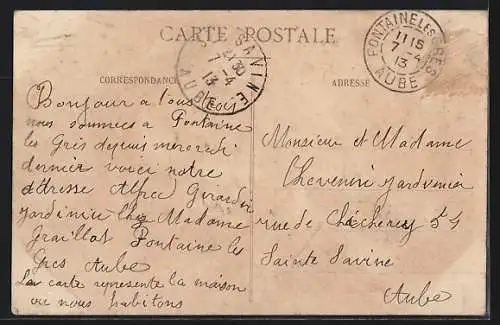 CARTE POSTALE
CORRESPONDANCE
ADRESSE
STE SAVINE
21 30
7 - 4
13
AUBE
FONTAINE LES GRES
11 15
7 - 4
13
AUBE
Bonjour a tous trois
nous sommes a Fontaine
les Grès depuis mercredi
dernier voici notre
adresse Alfred Girardin
jardinier chez Madame
Graillot Fontaine les
Gres Aube
La carte represente la maison
ou nous habitons
Monsieur et Madame
jardinier
rue de 54
Sainte Savine
Aube